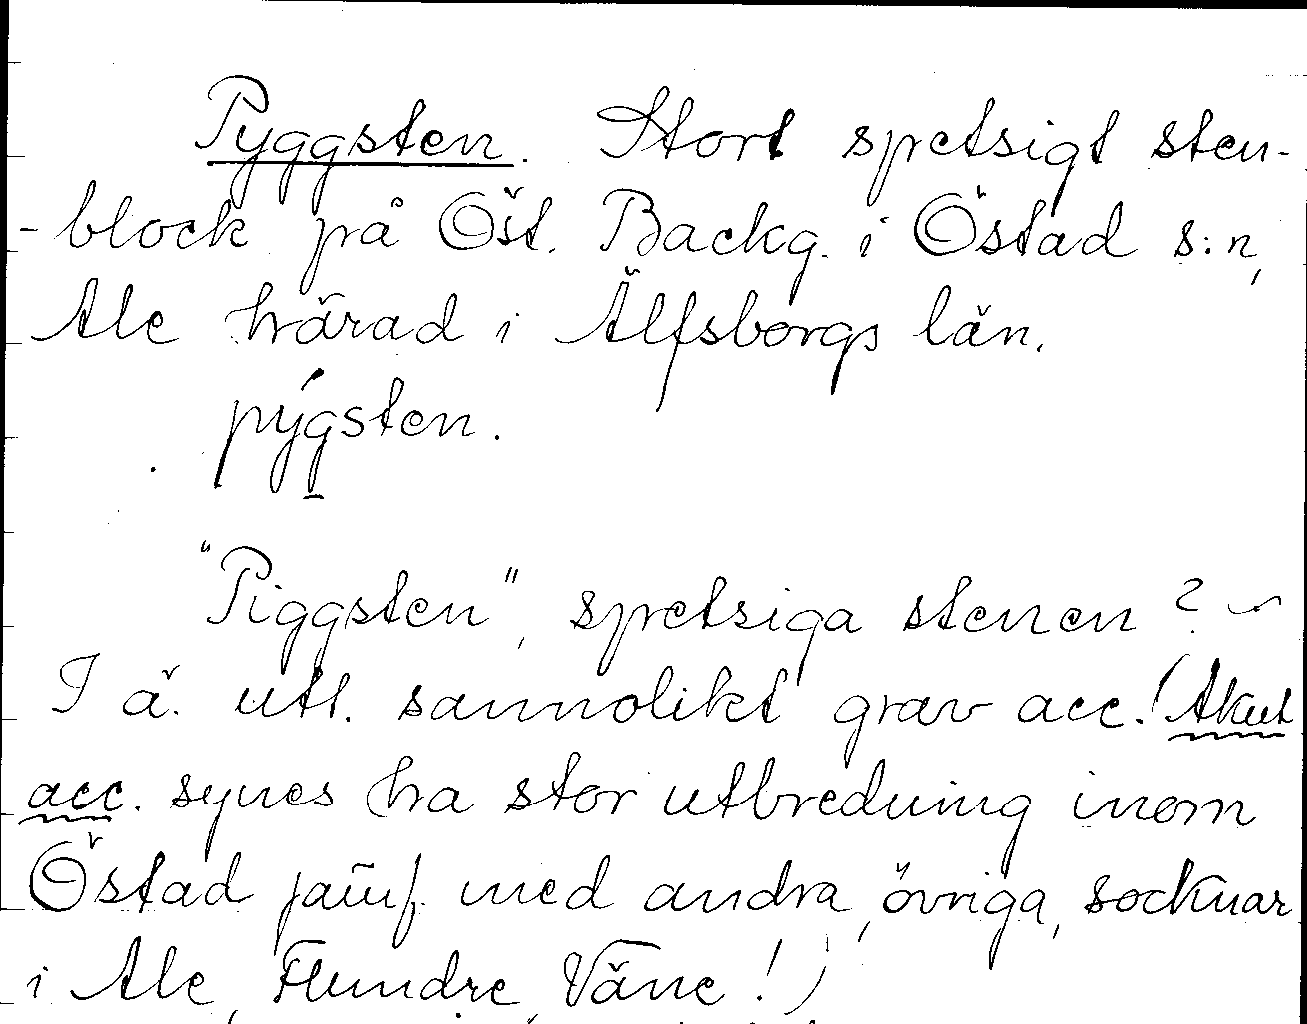 Pyggsten. Stort spetsigt sten-
-block på Öst. Backg. i Östad s:n,
Ale härad i Älfsborgs län.
pýgsten.
"Piggsten", spetsiga stenen?
I ä. utt. sannolikt grav acc. (Akut
acc. synes ha stor utbredning inom
Östad jämf. med andra, övriga, socknar
i Ale, Flundre, Väne!)